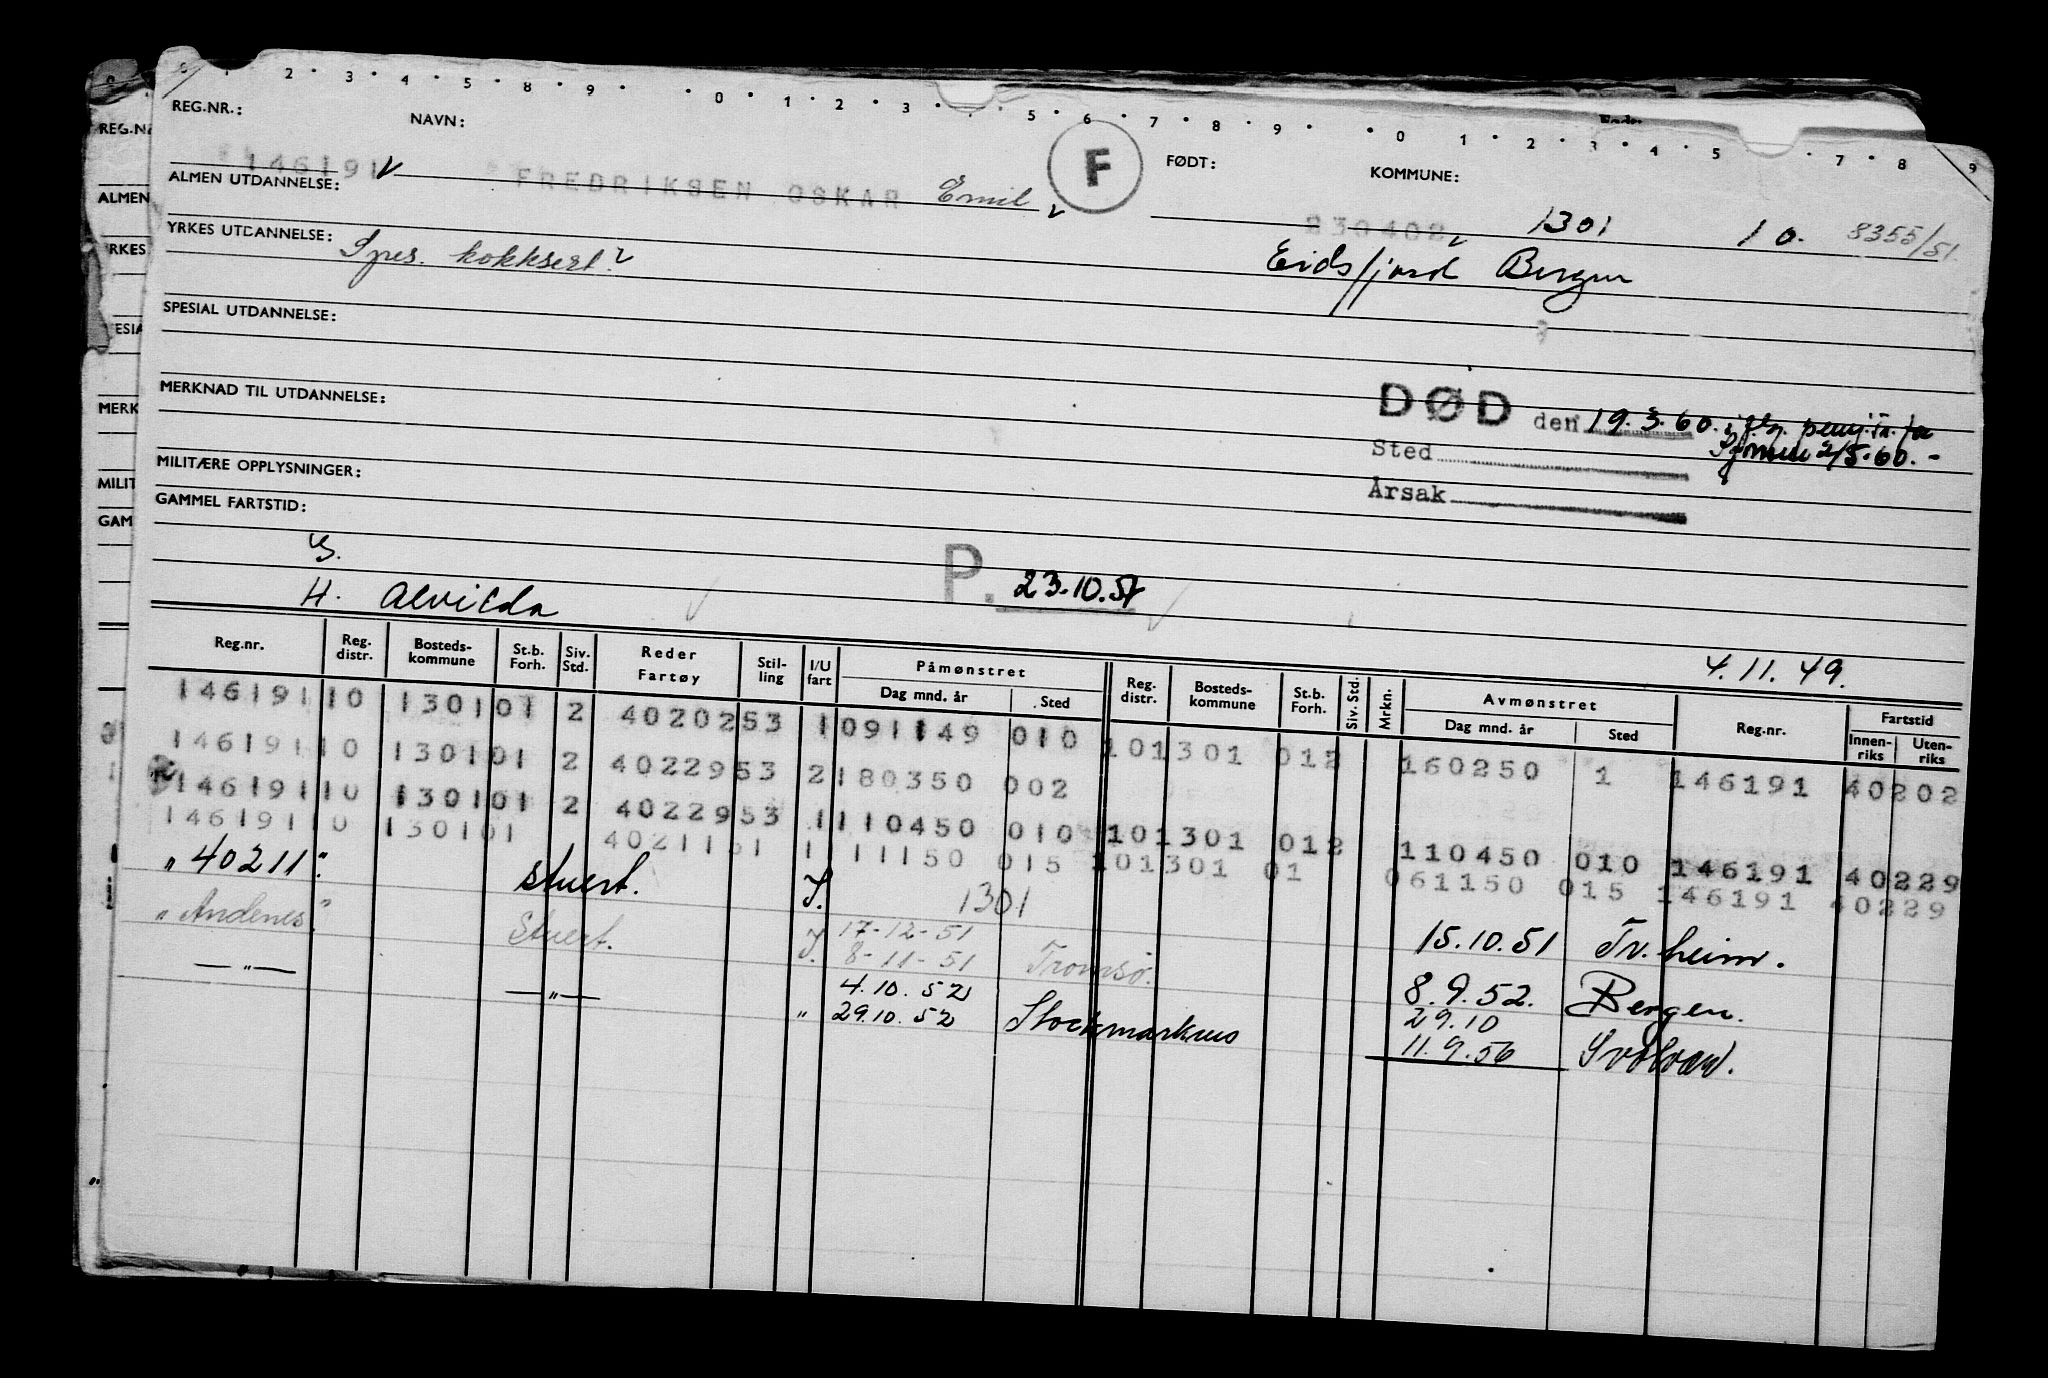 0 1 2 3 4 5 6 7 8 9 0 1 2 3 . 5 6 7 8 9 0 1 2 3 4 5 7 8 9
REG.NR.: NAVN: FØDT: KOMMUNE:
146191 FREDRIKSEN OSKAR Emil F 230402 1301 10. 8355/51
ALMEN UTDANNELSE:
Eidsfjord Bergen
YRKES UTDANNELSE: Spes. kokksert.
SPESIAL UTDANNELSE:
MERKNAD TIL UTDANNELSE:
DØD den 19.3.60. iflg. pensj.tr. for
Sjømenn 2/5.60.-
Sted
Årsak
MILITÆRE OPPLYSNINGER:
GAMMEL FARTSTID:
G.
H. Alvilda
P. 23.10.57
4.11.49.
Reg.nr. Reg. distr. Bosteds-kommune St.b. Forh. Siv. Std. Reder Fartøy Stil-ling I/U fart Påmønstret Dag mnd. år Sted Reg. distr. Bosteds-kommune St.b. Forh. Siv. Std. Mrkn. Avmønstret Dag mnd. år Sted Reg.nr. Fartstid Innen-riks Uten-riks
146191 10 1301 01 2 40202 53 1 091149 010 10 1301 01 2 160250 1 146191 40202
146191 10 1301 01 2 40229 53 2 180350 002
146191 10 1301 01 2 40229 53 1 110450 010 10 1301 01 2 110450 010 146191 40229
146191 10 1301 01 40211 51 1 11150 015 10 1301 01 061150 015 146191 40229
" 40211 " stuert. I. 1301 15.10.51 Tr.heim.
" Andenes " Stuert. I. 17-12-51
8-11-51 Tromsø. 8.9.52. Bergen.
— " — — " — 4.10.52 29.10
" 29.10.52 Stockmarknes 11.9.56 Svolvær.